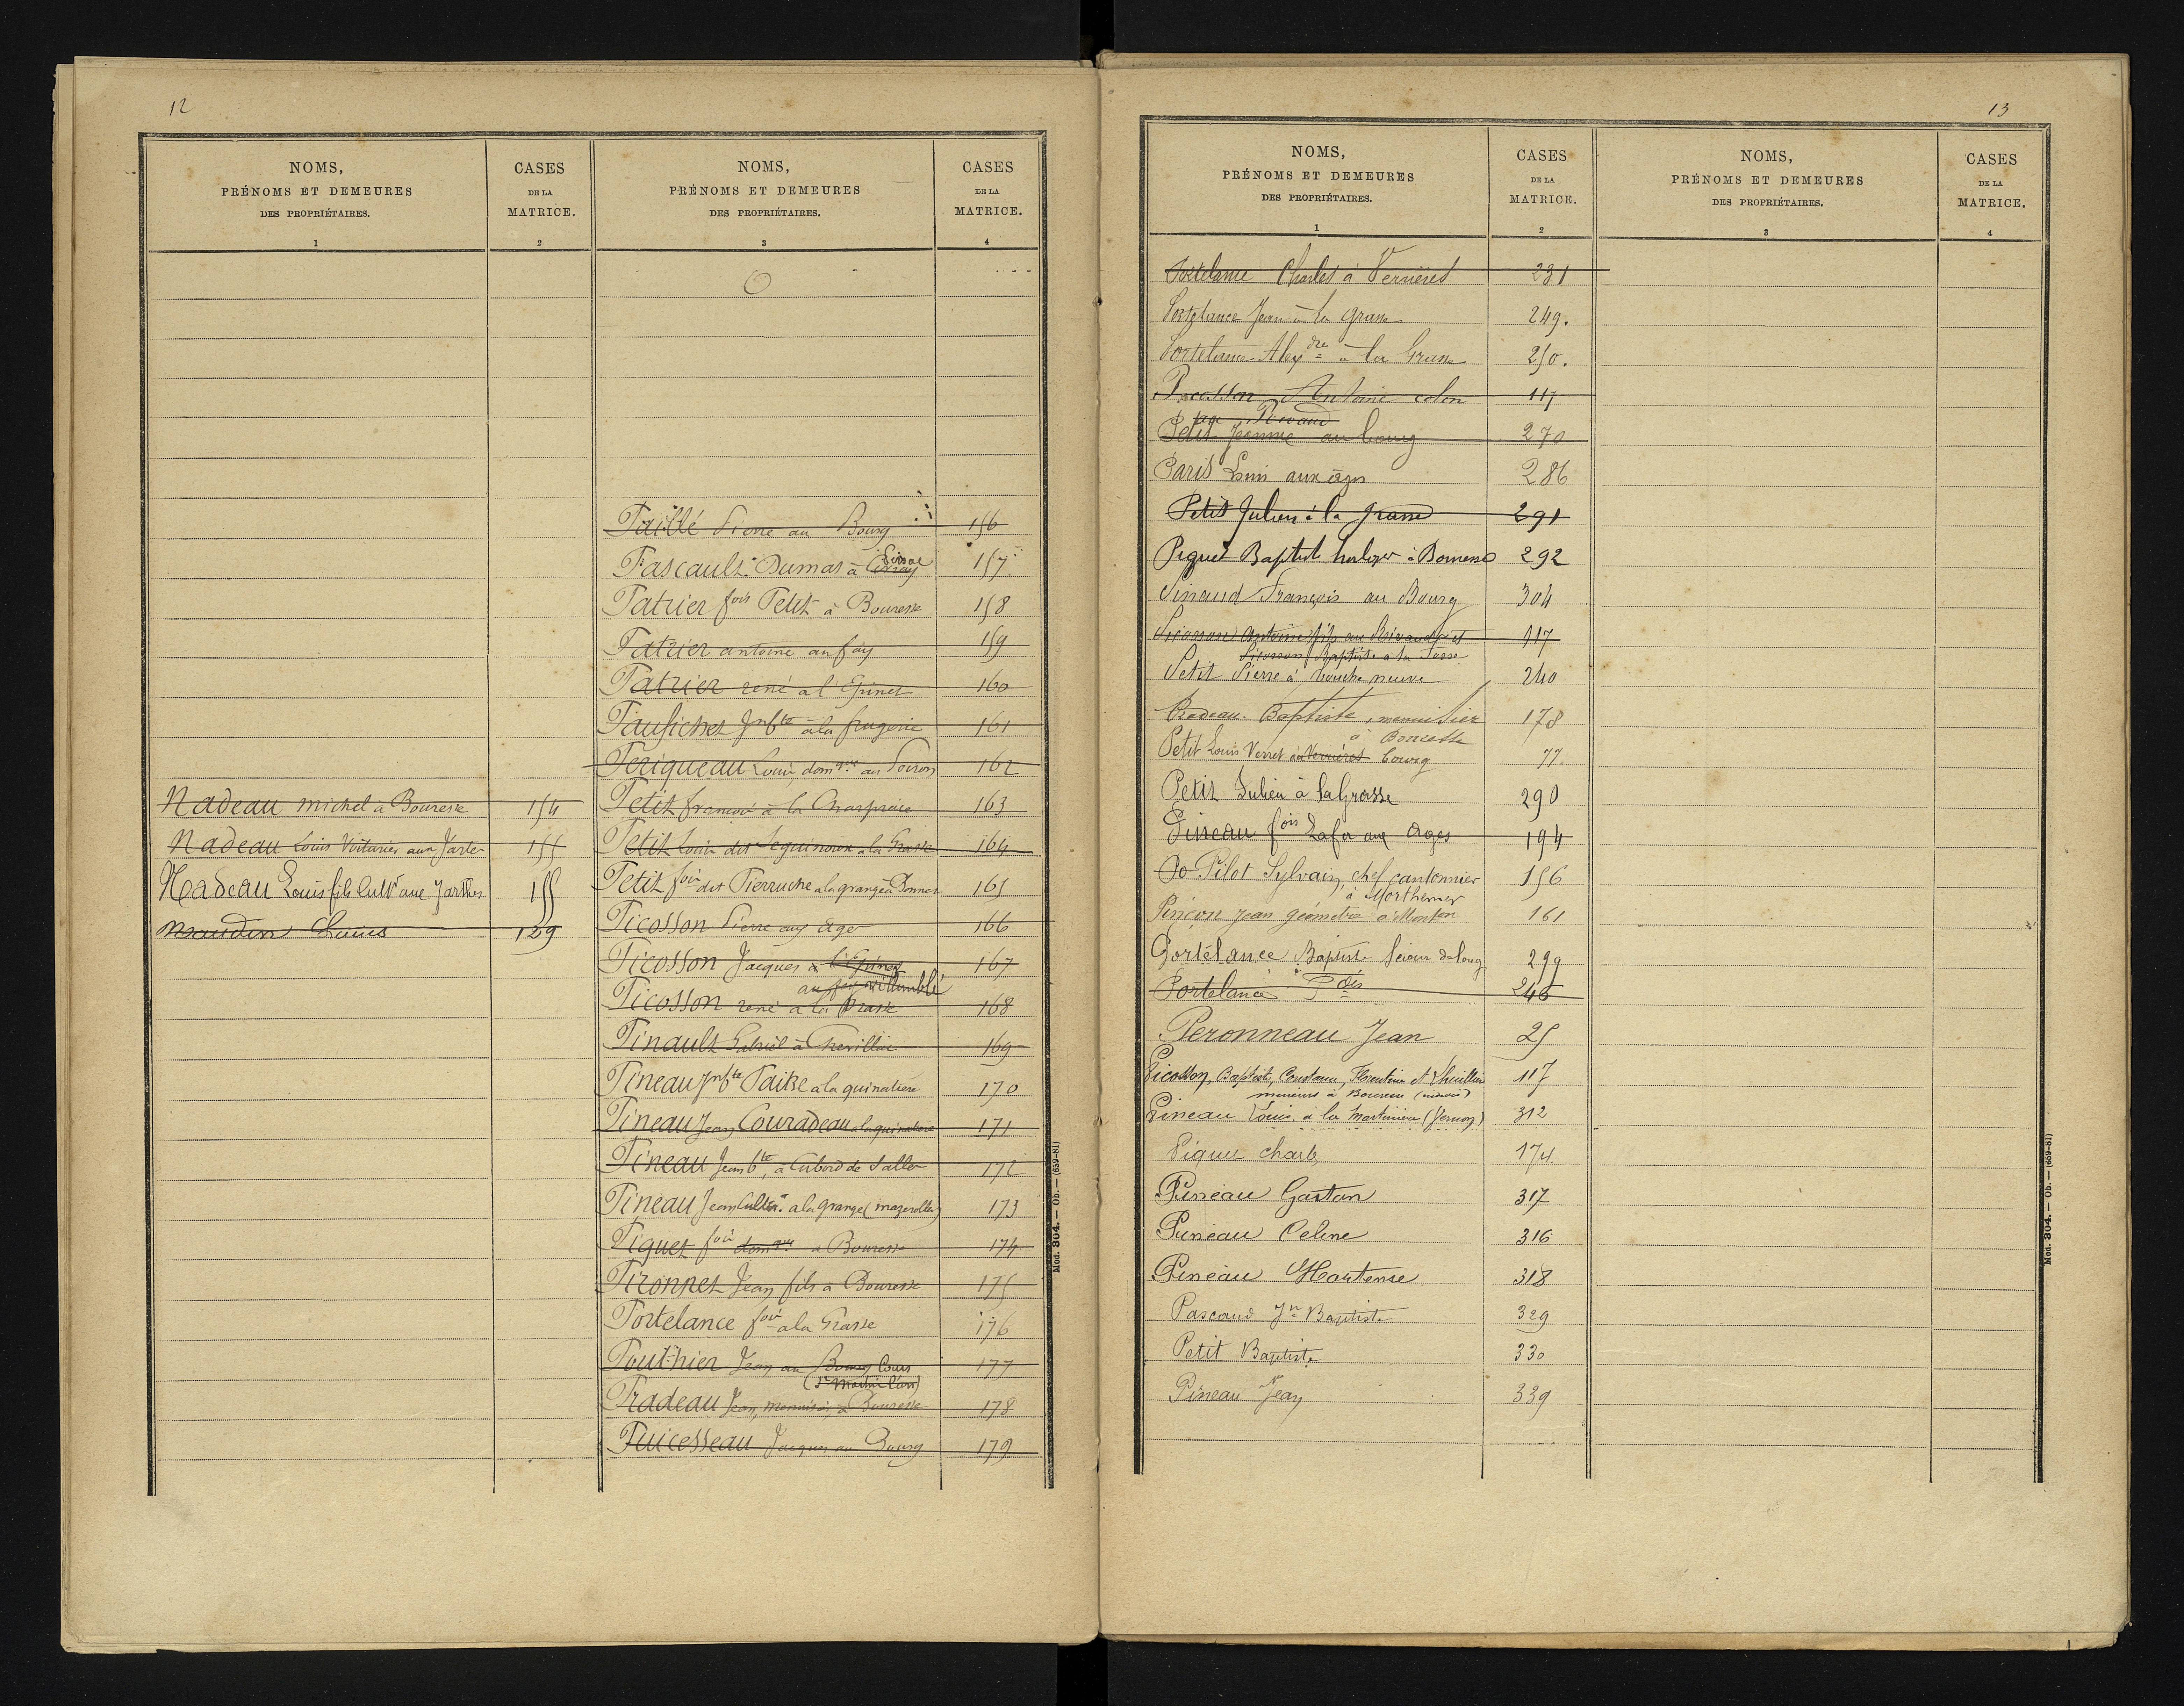 12
NOMS,
PRÉNOMS ET DEMEURES
DES PROPRIÉTAIRES.
1
CASES
DE LA
MATRICE.
2
Nadeau michel à Bouresse 154
Nadeau Louis Voiturier aux Jartes 155
Nadeau Louis fils Cultr aux Jarthes 155
Naudin Louis 129
NOMS,
PRÉNOMS ET DEMEURES
DES PROPRIÉTAIRES.
3
CASES
DE LA
MATRICE.
4
Paillé Pierre au Bourg 156
Pascault Dumas à 157
Patrier fois Petit à Bouresse 158
Patrier antoine au fay 159
Patrier rené à l'Epinet 160
Paufichet Jn bte à la frugerie 161
Périqueau Louis, domque au Poiron 162
Petit françois à la Charpraie 163
Petit Louis dit Sequinoux à la Grasse 164
Petit fois dit Pierruche à la grange à Bonnes 165
Picosson Pierre aux Ages 166
Picosson Jacques à l'Epinet 167
au fay
Picosson rené à la Grasse 168
Pinault Gabriel à Chevillie 169
Pineau Jn bte Paitre à la quinalière 170
Pineau Jean Couradeau à la quinalière 171
Pineau Jean bte, à Cubord de Salles 172
Pineau Jean Cultr à la grange (mazerolles) 173
Piquet fois domque à Bouresse 174
Pironnet Jean fils à Bouresse 175
Portelance fois à la Grasse 176
Pouthier Jean au Bourg Cours 177
(St Martin l'ars)
Pradeau Jean, menuisier, à Bouresse 178
Puicesseau Jacques au Bourg 179
Mod. 304. — Ob. — (659-81)
13
NOMS,
PRÉNOMS ET DEMEURES
DES PROPRIÉTAIRES.
1
CASES
DE LA
MATRICE.
2
NOMS,
PRÉNOMS ET DEMEURES
DES PROPRIÉTAIRES.
3
CASES
DE LA
MATRICE.
4
Portelance Charles à Verrières 231
Portelance Jean à la Grasse 249.
Portelance Alexdre à la Grasse 250.
Picosson Antoine colon 117
Petit Jeanne au bourg 270
Paris Louis aux âges 286
Petit Julien à la Grasse 291
Piquet Baptiste horloger à Bouresse 292
Pinaud François au Bourg 304
Picosson Antoine fils au Rivaud et 117
Picosson Baptiste à la Fosse
Petit Pierre à bouche neuve 240
Pradeau Baptiste, menuisier 178
à Bouresse
Petit Louis Verret à Verrières bourg 77
Petit Julien à la Grasse 290
Pineau fois Lafa aux Ages 194
Pilot Sylvain, chef cantonnier 156
à Morthemer
Pinçon Jean géomètre à 161
Portelance Baptiste 299
Portelance 246
Peronneau Jean 25
Picosson, Baptiste, Constance, Florentine et 117
mineurs à Bouresse
Pineau Louis à la Martinière (Vernon) 312
Piquet Charles 174.
Pineau Gaston 317
Pineau Celine 316
Pineau Hortense 318
Pascaud Jn Baptiste 329
Petit Baptiste 330
Pineau Jean 339
Mod. 304. — Ob. — (659-81)